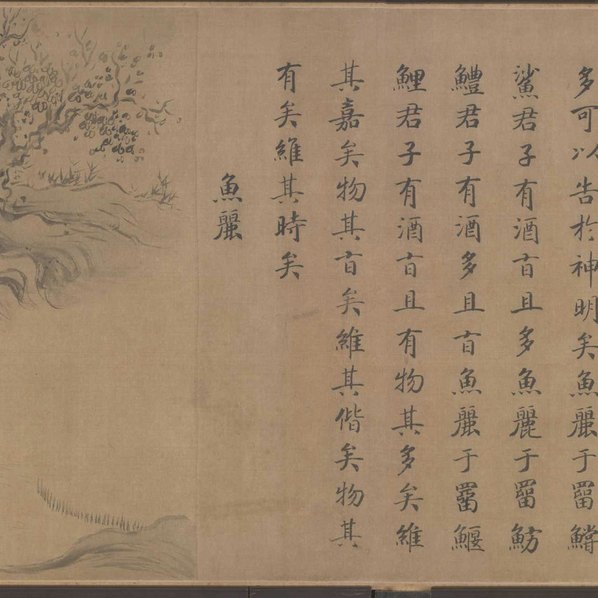 多可以告於神明矣魚麗于罶鱨
鯊君子有酒旨且多魚麗于罶魴
鱧君子有酒多且旨魚麗于罶鰋
鯉君子有酒旨且有物其多矣維
其嘉矣物其旨矣維其偕矣物其
有矣維其時矣
魚麗